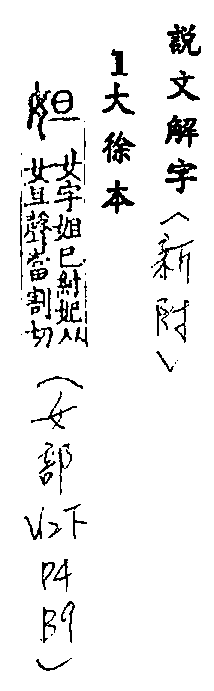 説文解字(新附)
1大徐本
女字妲己紂妃从
女旦聲當割切
(女部
12下
P4
B9)